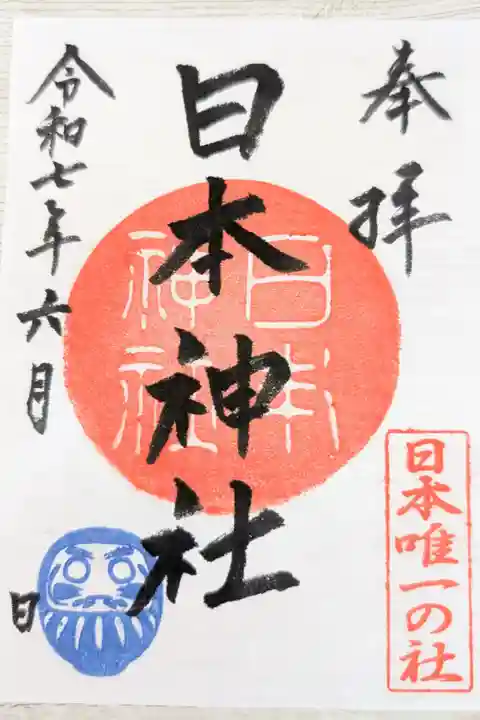 奉拝
日本神社
日本
神社
日本唯一の社
令和七年六月
日